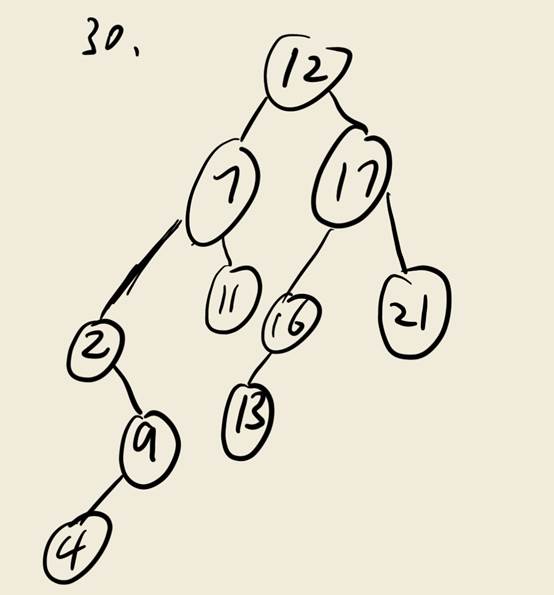 30.
12
7
17
11
16
21
2
13
9
4